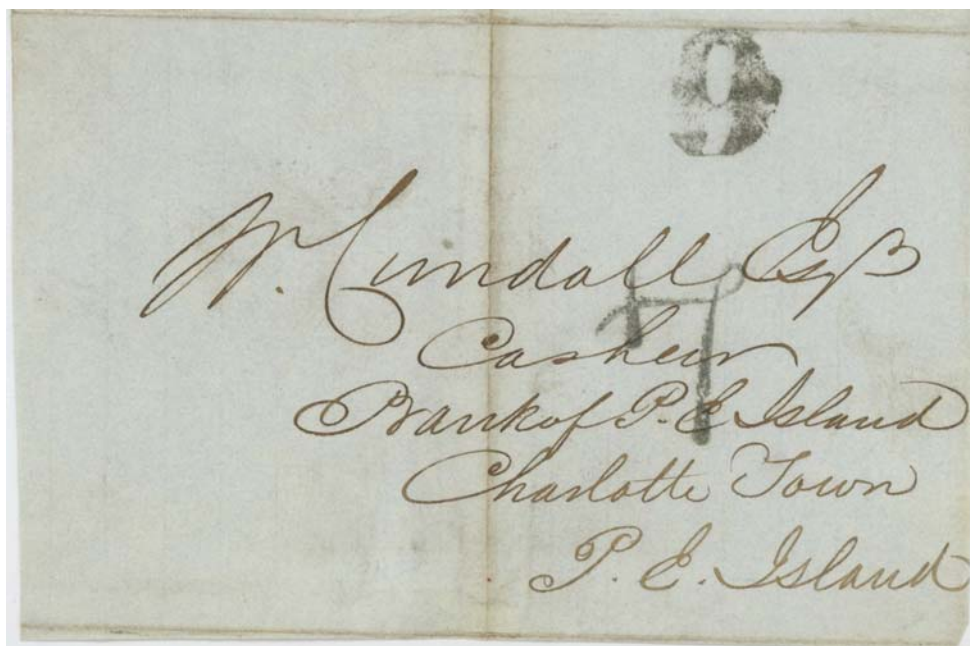 9
W. Cundall Esqr
Casheir
Bank of P. E. Island
Charlotte Town
P. E. Island